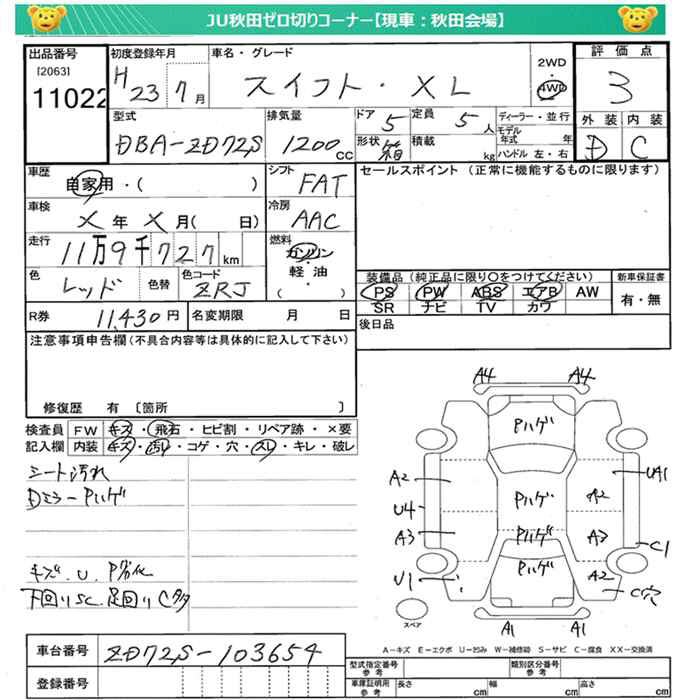 JU秋田ゼロ切りコーナー【現車：秋田会場】
出品番号
[2063]
11022
初度登録年月
H 23 7 月
車名・グレード
スイフト・XL
2WD
・
4WD
評価点
3
外装 内装
D C
型式
DBA-ZD72S
排気量
1200 CC
ドア 5
形状 箱
定員 5 人
積載 kg
ディーラー・並行
モデル年式 年
ハンドル 左・右
車歴
自家用・( )
シフト
FAT
セールスポイント (正常に機能するものに限ります)
車検
X 年 X 月( 日)
冷房
AAC
走行
11万9千727 km
燃料
ガソリン
・
軽油
・
( )
色
レッド
色替
色コード
ZRJ
装備品(純正品に限り〇をつけてください)
PS PW ABS エアB AW
SR ナビ TV カワ
新車保証書
有・無
R券 11,430円
名変期限 月 日
後日品
注意事項申告欄(不具合内容等は具体的に記入して下さい)
修復歴 有 〔箇所 〕
検査員 FW キズ・飛石・ヒビ割・リペア跡・×要
記入欄 内装 キズ・汚れ・コゲ・穴・スレ・キレ・破レ
シート汚れ
Dミラー Pハゲ
キズ.U.P劣化
下回りSC.足回りC多々
A4 A4
Pハゲ
A2 UA1
U4 Pハゲ A2
A3 Pハゲ A3 C1
Pハゲ
U1 A2 C穴
スペア
A1 A1
A-キズ E-エクボ U-凹み W-補修跡 S-サビ C-腐食 XX-交換済
車台番号 ZD72S-103654
登録番号
型式指定番号 参考
類別区分番号 参考
車庫証明用 参考
長さ cm 幅 cm 高さ cm